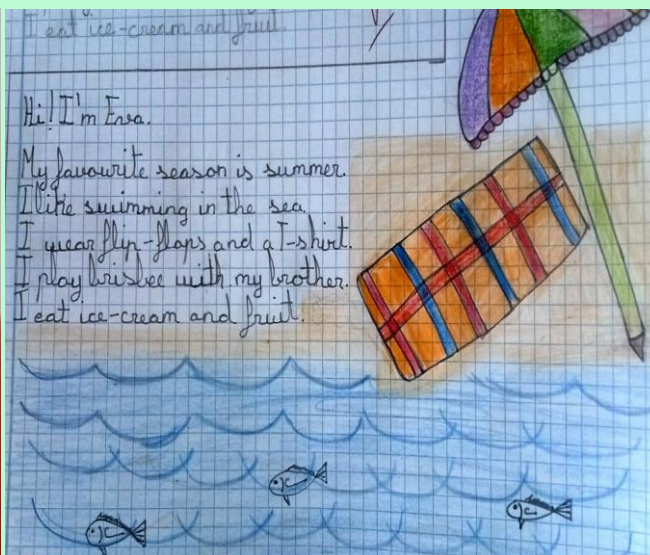 I eat ice-cream and fruit.
Hi! I'm Eva.
My favourite season is summer.
I like swimming in the sea.
I wear flip-flops and a T-shirt.
I play brisbee with my brother.
I eat ice-cream and fruit.